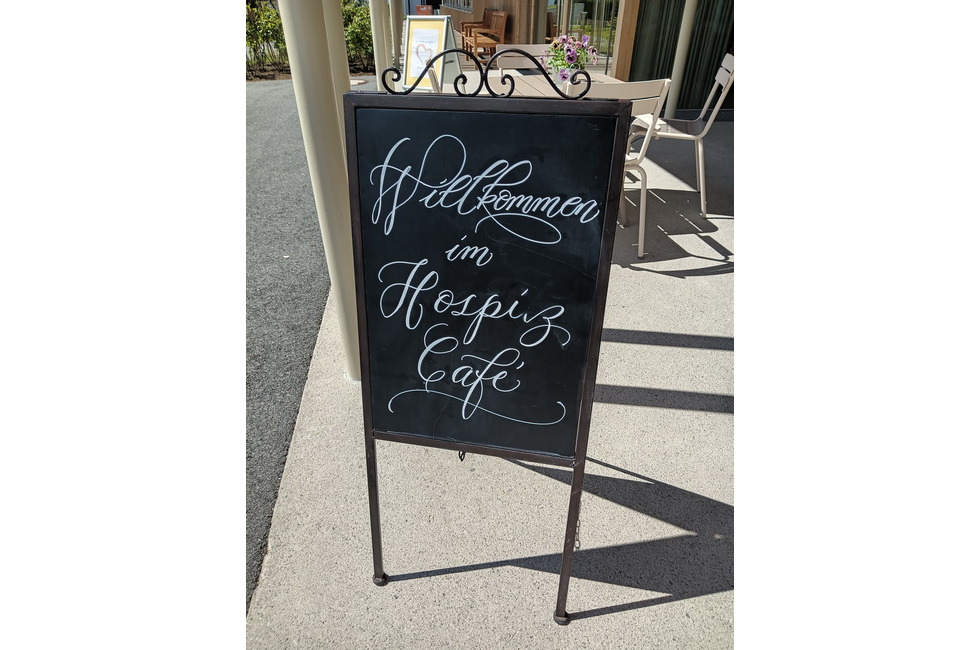 Willkommen
im
Hospiz
Café